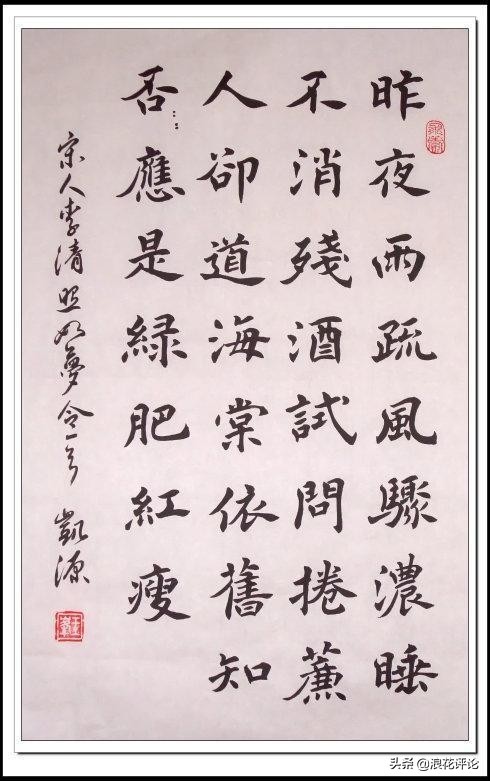 昨夜雨疏風驟濃睡
不消殘酒試問捲簾
人卻道海棠依舊知
否：：應是綠肥紅瘦
宋人李清照如夢令一首 凱源
头条 @浪花评论